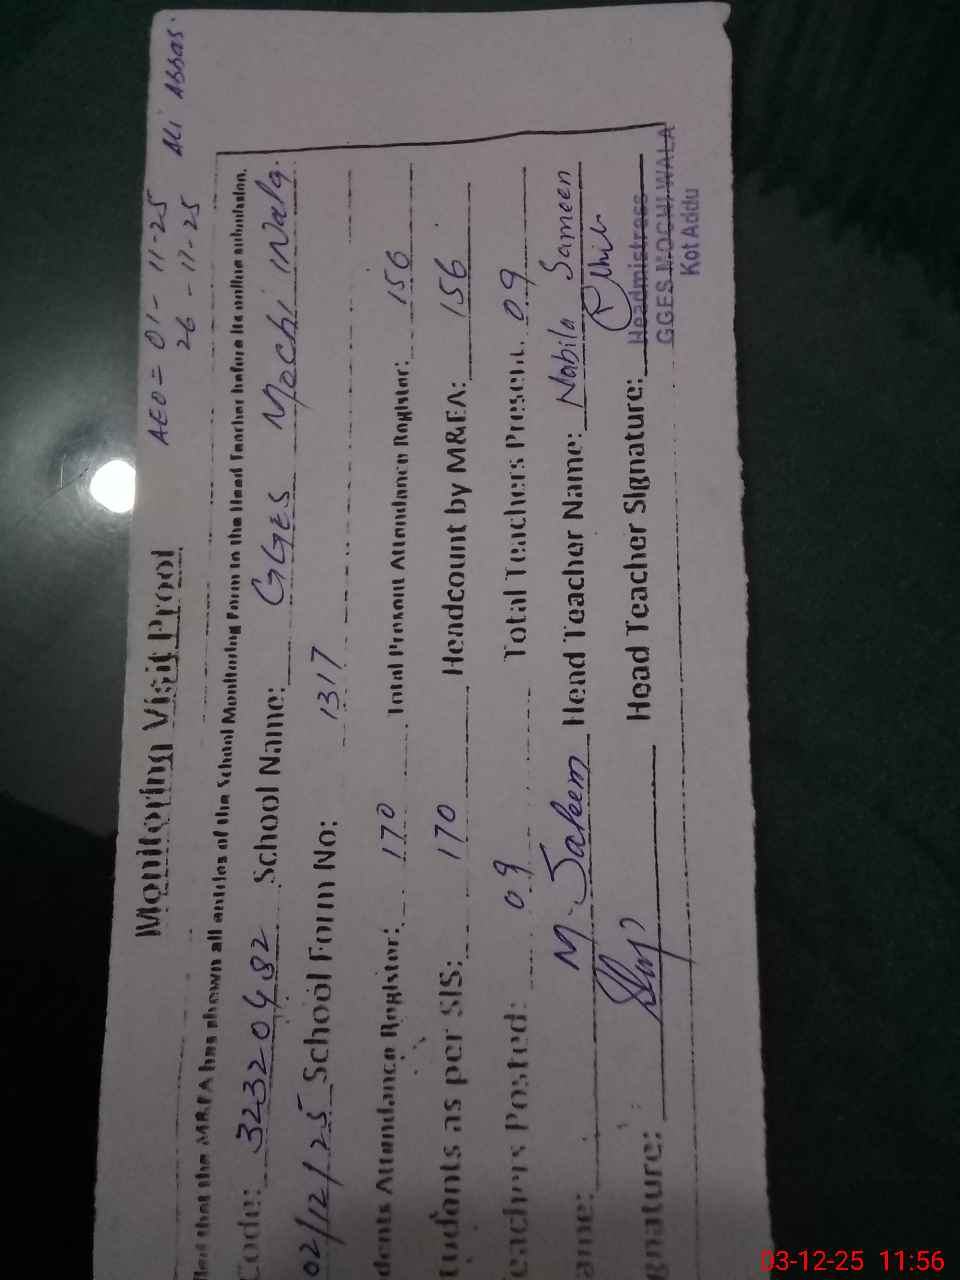 AEO = 01-11-25 Ali Abbas.
26-11-25
Monitoring Visit Proof
that the M&EA has shown all entries of the School Monitoring Form to the Head Teacher before its online submission.
Code: 32320482 School Name: GGES Mochi Wala.
02/12/25 School Form No: 1317
dents Attendance Register: 170 Total Present Attendance Register: 156
tudents as per SIS: 170 Headcount by M&EA: 156
eachers Posted: 09 Total Teachers Present: 09
ame: M. Saleem Head Teacher Name: Nabila Sameen
gnature: Head Teacher Signature:
Headmistress
GGES MOCHI WALA
Kot Addu
03-12-25 11:56